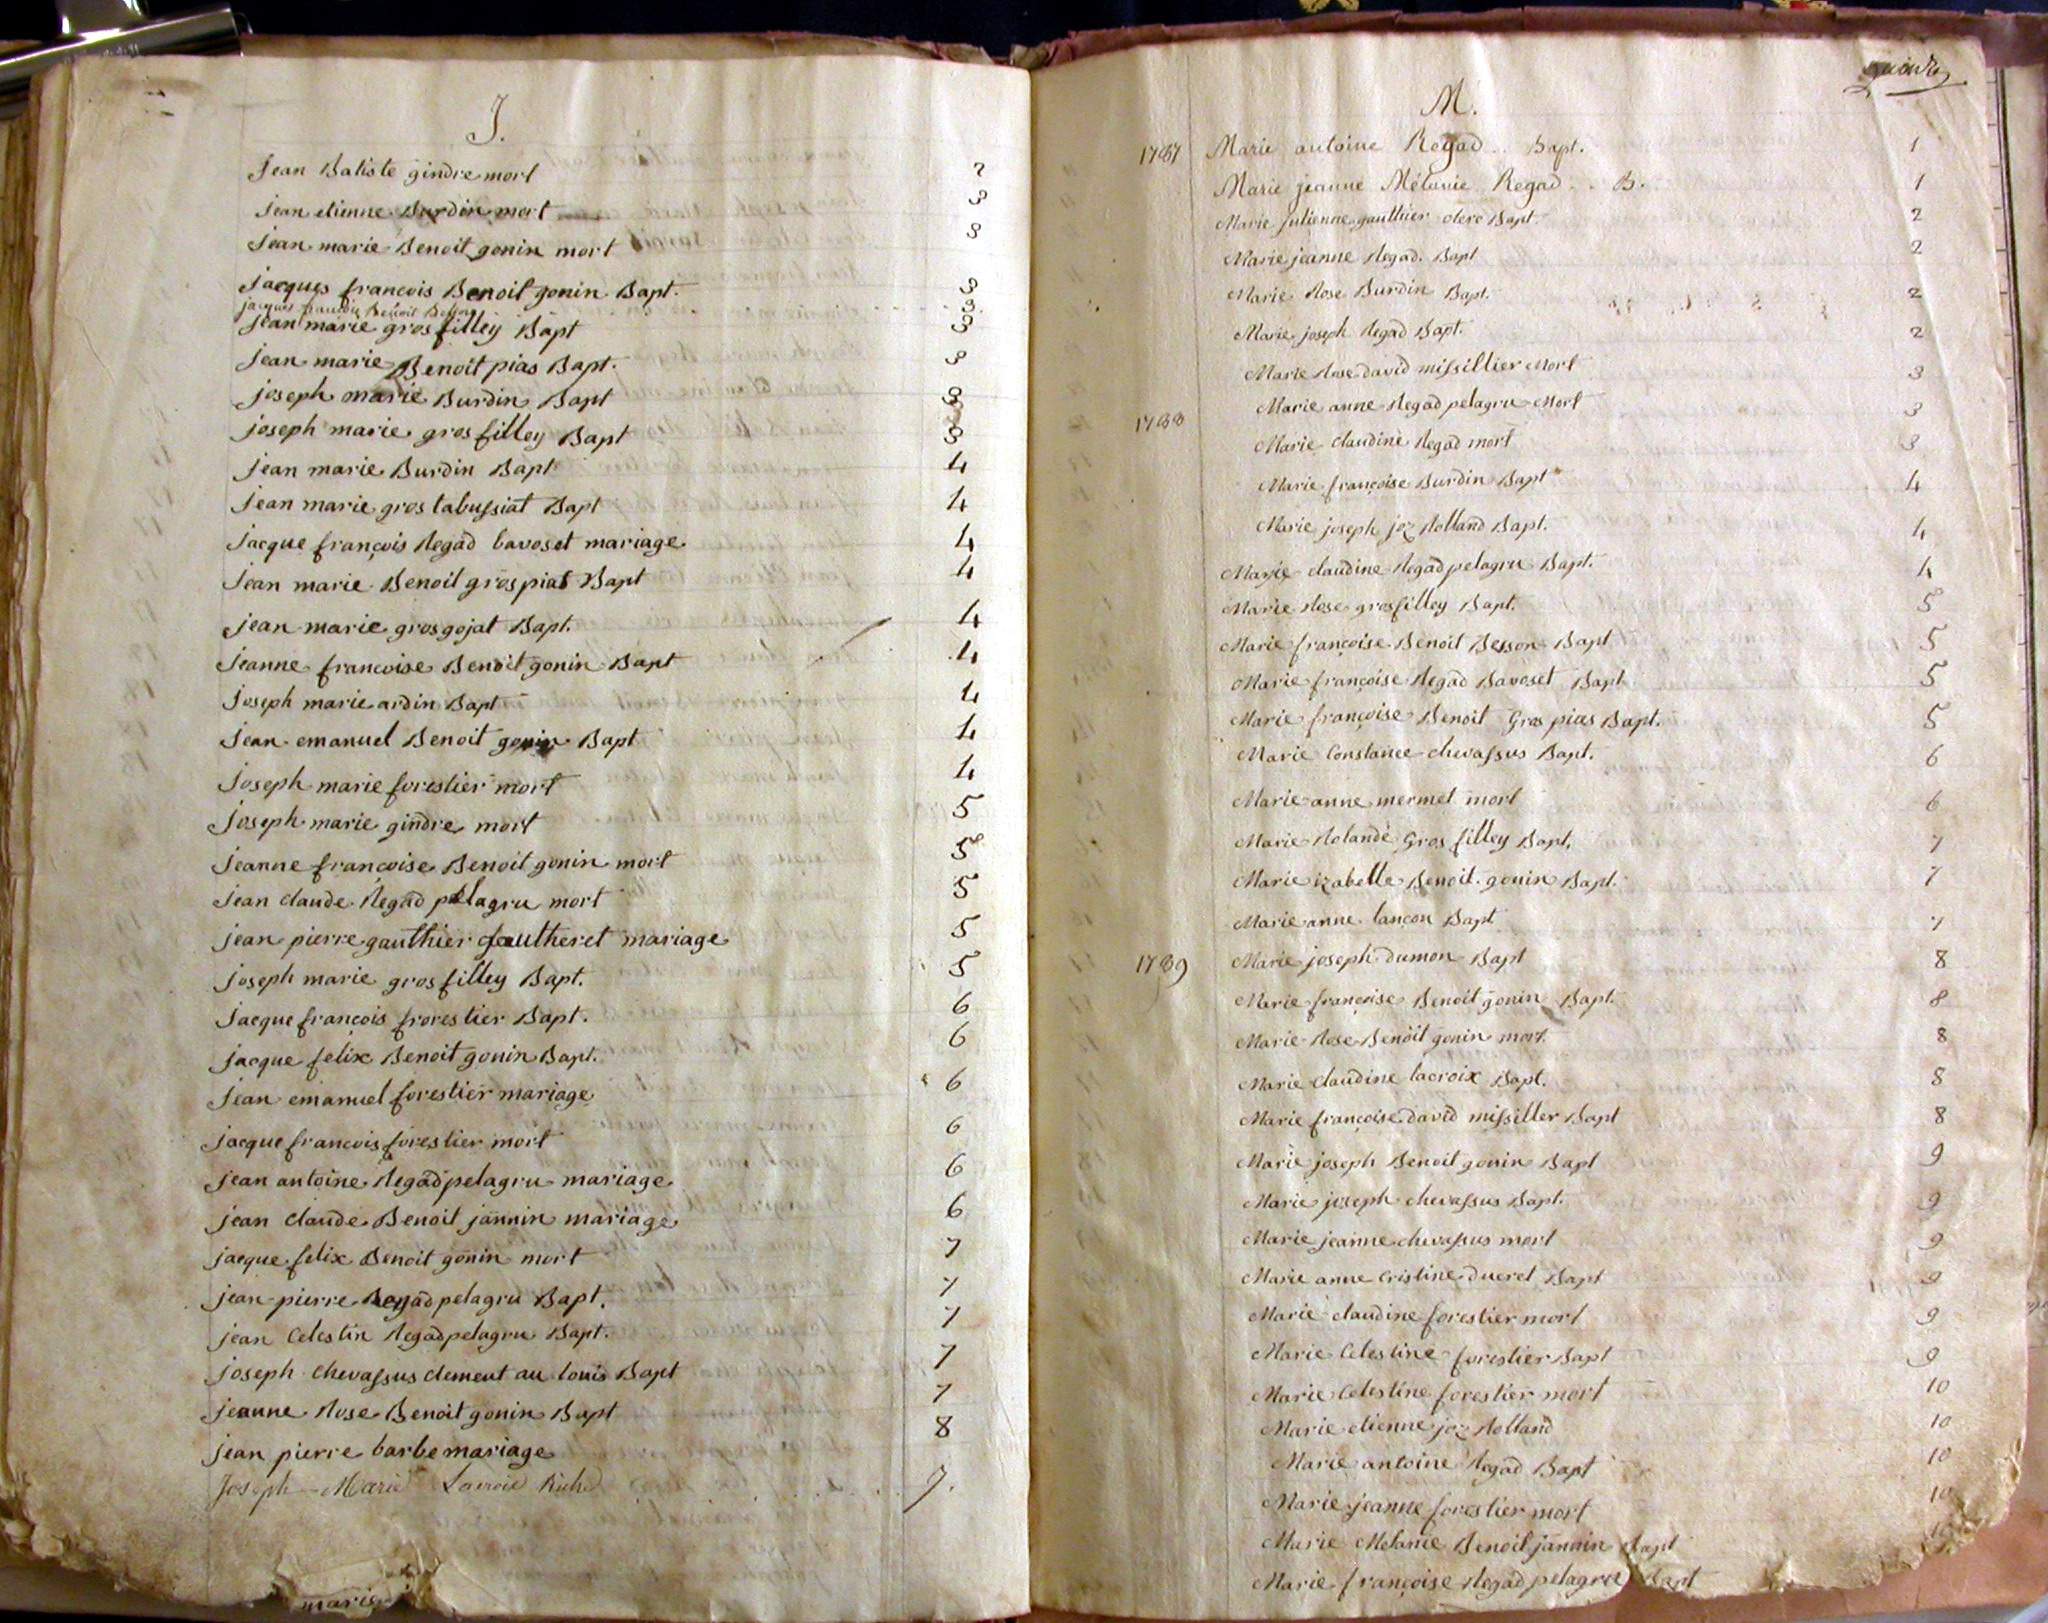 J.
Jean Batiste gindre mort 2
Jean etienne Burdin mort 3
Jean marie Benoit gonin mort 3
Jacques francois Benoit gonin Bapt. 3
jacques francois Benoit 3
jean marie gros filley Bapt 3
jean marie Benoit pias Bapt. 3
joseph marie Burdin Bapt 3
joseph marie gros filley Bapt 3
jean marie Burdin Bapt 4
jean marie gros tabussiat Bapt 4
jacque françois Regad bavoset mariage 4
jean marie Benoit gros pias Bapt 4
jean marie gros gojat Bapt. 4
jeanne francoise Benoit gonin Bapt 4
joseph marie ardin Bapt 4
jean emanuel Benoit gonin Bapt 4
joseph marie forestier mort 4
joseph marie gindre mort 5
jeanne françoise Benoit gonin mort 5
jean claude Regad pelagru mort 5
jean pierre gauthier fautheret mariage 5
joseph marie gros filley Bapt. 5
jacque françois frorestier Bapt. 6
jacque felix Benoit gonin Bapt. 6
jean emanuel forestier mariage 6
jacque francois forestier mort 6
jean antoine Regad pelagru mariage 6
jean claude Benoit jannin mariage 6
jacque felix Benoit gonin mort 7
jean pierre Regad pelagru Bapt. 7
jean Celestin Regad pelagru Bapt. 7
joseph chevassus clement au louis Bapt 7
jeanne Rose Benoit gonin Bapt 7
jean pierre barbe mariage 8
Joseph Marie Lacroix Riche 7.
marie
M.
1787 Marie antoine Regad .. Bapt. 1
Marie jeanne Mélanie Regad .. B. 1
Marie Julienne gauthier clerc Bapt. 2
Marie jeanne Regad. Bapt 2
Marie Rose Burdin Bapt. 2
Marie joseph Regad Bapt. 2
Marie Rose david missillier Mort 3
1788 Marie anne Regad pelagru Mort 3
Marie claudine Regad mort 3
Marie françoise Burdin Bapt 4
Marie joseph joz Rolland Bapt. 4
Marie claudine Regad pelagru Bapt. 4
Marie Rose gros filley Bapt. 5
Marie françoise Benoit Besson Bapt 5
Marie françoise Regad Bavoset Bapt 5
Marie françoise Benoit Gros pias Bapt. 5
Marie Constance chevassus Bapt. 6
Marie anne mermet mort 6
Marie Rolande Gros filley Bapt. 7
Marie izabelle Benoit gonin Bapt. 7
Marie anne lançon Bapt 7
1789 Marie joseph dumon Bapt 8
Marie françoise Benoit gonin Bapt. 8
Marie Rose Benoit gonin mort 8
Marie claudine lacroix Bapt. 8
Marie françoise david missiller Bapt 8
Marie joseph Benoit gonin Bapt 9
Marie joseph chevassus Bapt. 9
Marie jeanne chevassus mort 9
Marie anne Cristine ducret Bapt 9
Marie claudine forestier mort 9
Marie Celestine forestier Bapt 9
Marie Celestine forestier mort 10
Marie etienne joz Rolland 10
Marie antoine Regad Bapt 10
Marie jeanne forestier mort 10
Marie Melanie Benoit jannin Bapt 10
Marie françoise Regad pelagru Bapt